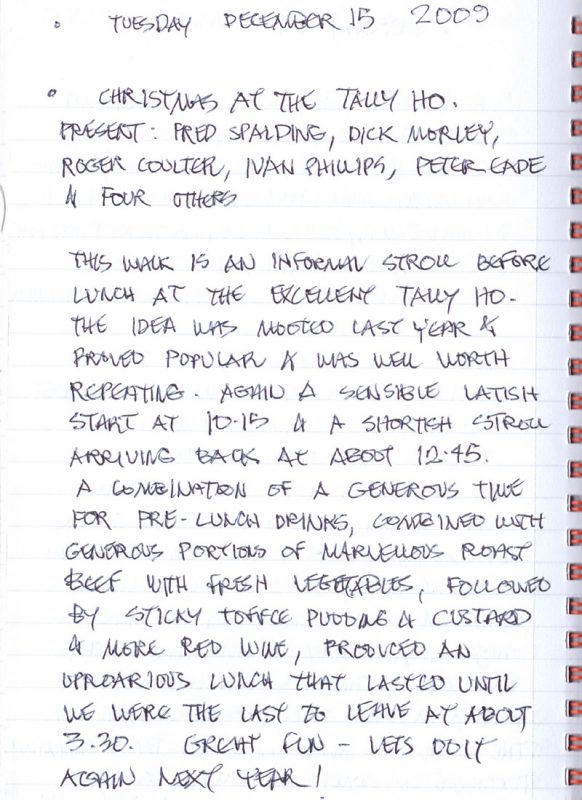 • TUESDAY DECEMBER 15 2009
• CHRISTMAS AT THE TALLY HO.
PRESENT: FRED SPALDING, DICK MORLEY,
ROGER COULTER, IVAN PHILLIPS, PETER EADE
& FOUR OTHERS
THIS WALK IS AN INFORMAL STROLL BEFORE
LUNCH AT THE EXCELLENT TALLY HO.
THE IDEA WAS MOOTED LAST YEAR &
PROVED POPULAR & WAS WELL WORTH
REPEATING. AGAIN A SENSIBLE LATISH
START AT 10.15 & A SHORTISH STROLL
ARRIVING BACK AT ABOUT 12.45.
A COMBINATION OF A GENEROUS TIME
FOR PRE-LUNCH DRINKS, COMBINED WITH
GENEROUS PORTIONS OF MARVELLOUS ROAST
BEEF WITH FRESH VEGETABLES, FOLLOWED
BY STICKY TOFFEE PUDDING & CUSTARD
& MORE RED WINE, PRODUCED AN
UPROARIOUS LUNCH THAT LASTED UNTIL
WE WERE THE LAST TO LEAVE AT ABOUT
3.30. GREAT FUN - LETS DO IT
AGAIN NEXT YEAR!